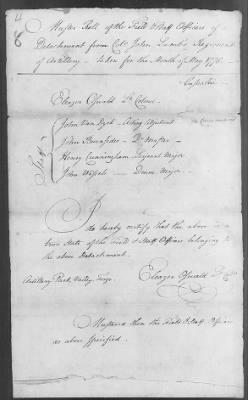 4
8
Muster Roll of the Field & Staff Officers of
Detachment from Col. John Lamb's Regiment
of Artillery - taken for the Month of May 1778 -
Casualties
Eleazer Oswald Lt. Colonel
Staff
John Van Dyck - Acting Adjutant
John - Qr. Master
Henry Cunningham Serjeant Major
John Wessels - Drum Major
I do hereby certify that the above is a
true State of the Field & Staff Officers belonging to
the above Detachment.
Artillery Park, Valley Forge
Eleazer Oswald
Mustered then the Field & Staff Officers
as above specified.